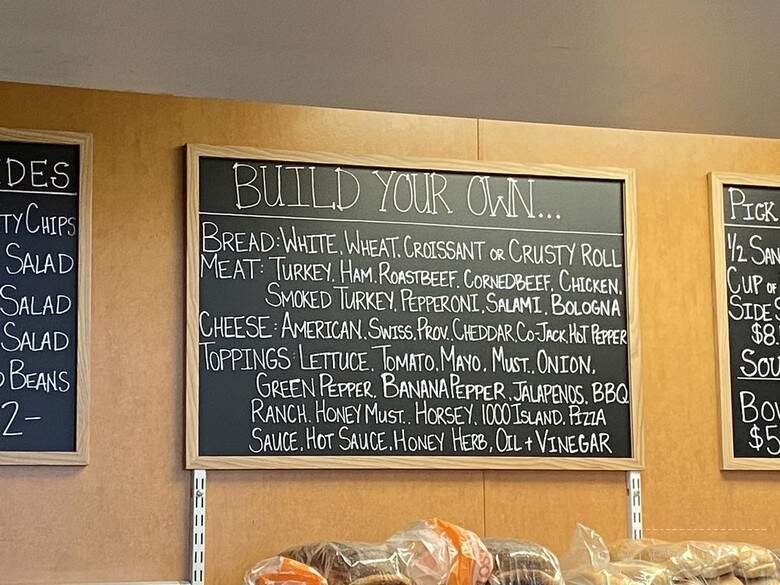 DES
TY CHIPS
SALAD
SALAD
SALAD
BEANS
2-
BUILD YOUR OWN...
BREAD: WHITE, WHEAT, CROISSANT OR CRUSTY ROLL
MEAT: TURKEY, HAM, ROASTBEEF, CORNEDBEEF, CHICKEN,
SMOKED TURKEY, PEPPERONI, SALAMI, BOLOGNA
CHEESE: AMERICAN, SWISS, PROV, CHEDDAR, CO-JACK, HOT PEPPER
TOPPINGS: LETTUCE, TOMATO, MAYO, MUST., ONION,
GREEN PEPPER, BANANA PEPPER, JALAPENOS, BBQ
RANCH, HONEY MUST., HORSEY, 1000 ISLAND, PIZZA
SAUCE, HOT SAUCE, HONEY HERB, OIL + VINEGAR
PICK
1/2 SAN
CUP OF
SIDE S
$8.
SOU
BOW
$5